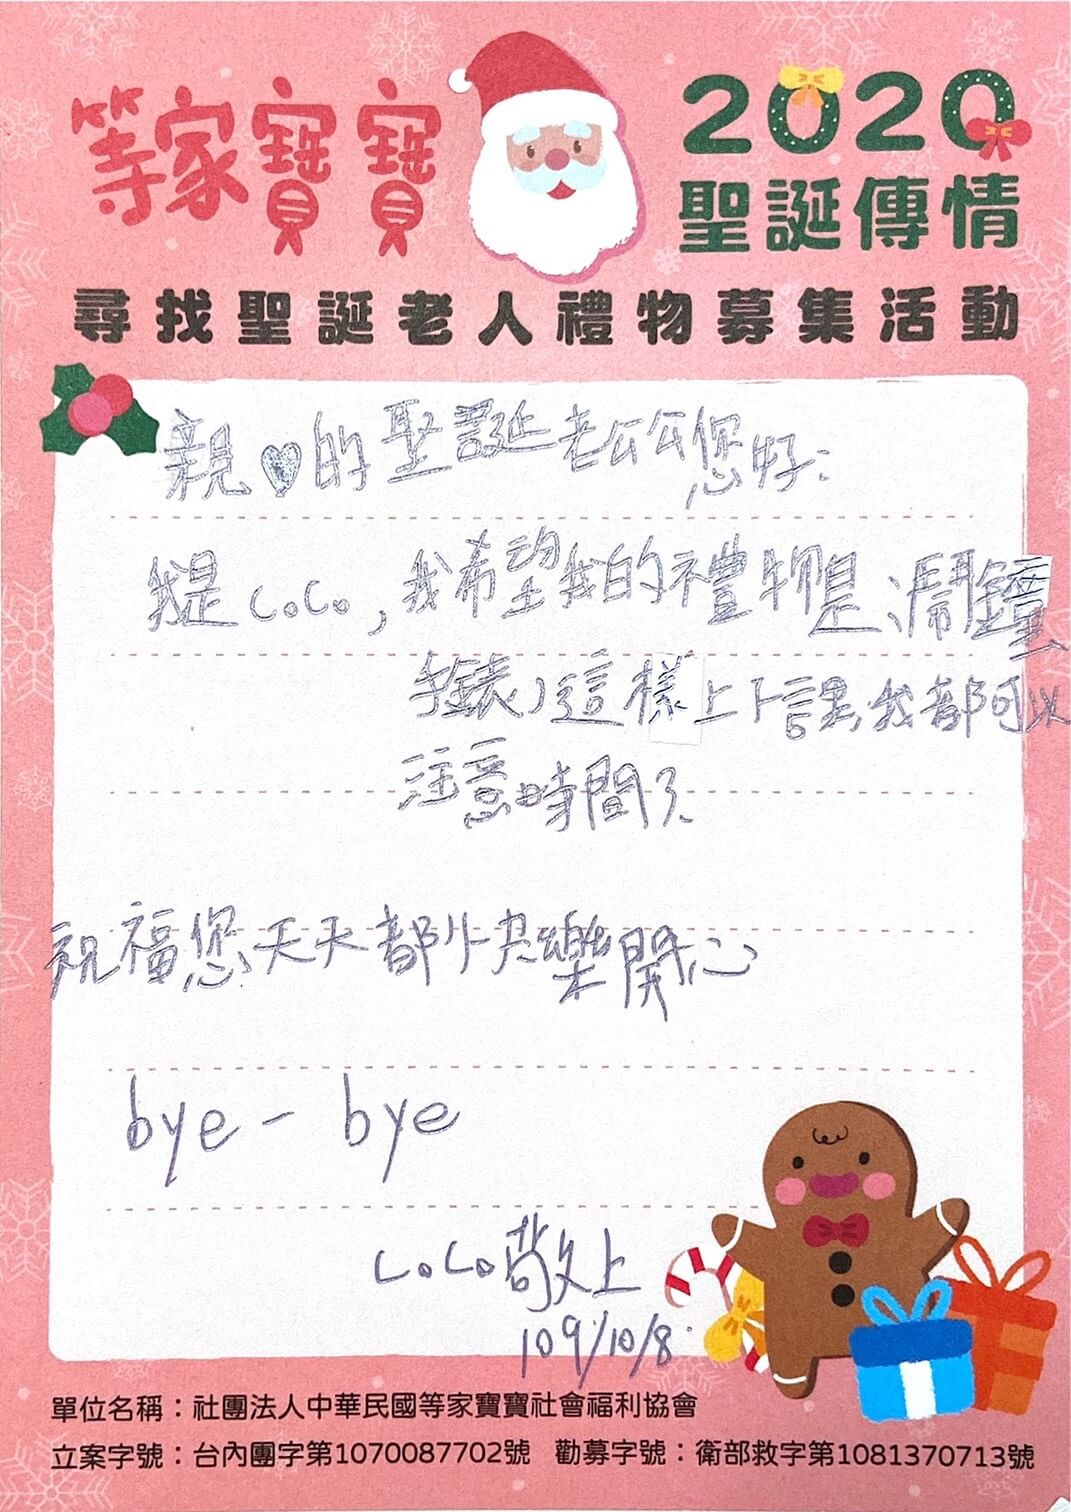 等家寶寶
2020
聖誕傳情
尋找聖誕老人禮物募集活動
親♡的聖誕老公公您好：
我是coco，我希望我的禮物是鬧鐘
手錶，這樣上下課我都可以
注意時間了
祝福您天天都快樂開心
bye - bye
coco敬上
109/10/8
單位名稱：社團法人中華民國等家寶寶社會福利協會
立案字號：台內團字第1070087702號 勸募字號：衛部救字第1081370713號